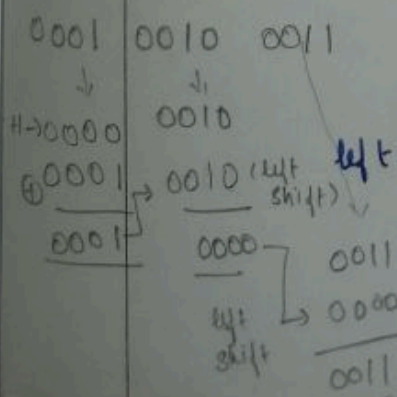 0001 0010 0011
H→0000 0010
⊕0001 0010 (left shift) left
0001 0000 0011
left shift 0000
0011